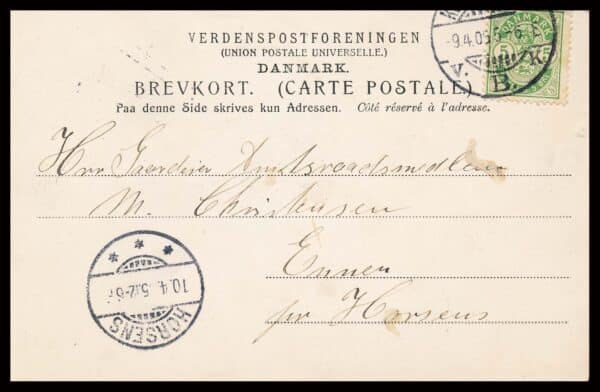 VERDENSPOSTFORENINGEN
(UNION POSTALE UNIVERSELLE.)
DANMARK.
BREVKORT. (CARTE POSTALE.)
Paa denne Side skrives kun Adressen. Côté réservé à l'adresse.
DANMARK
5 5
-9.4.05
V. B. K.
Hrr Gaardeier Amtsraadsmedlem
M. Christensen
Ennen
pr Horsens
10.4.5
HORSENS